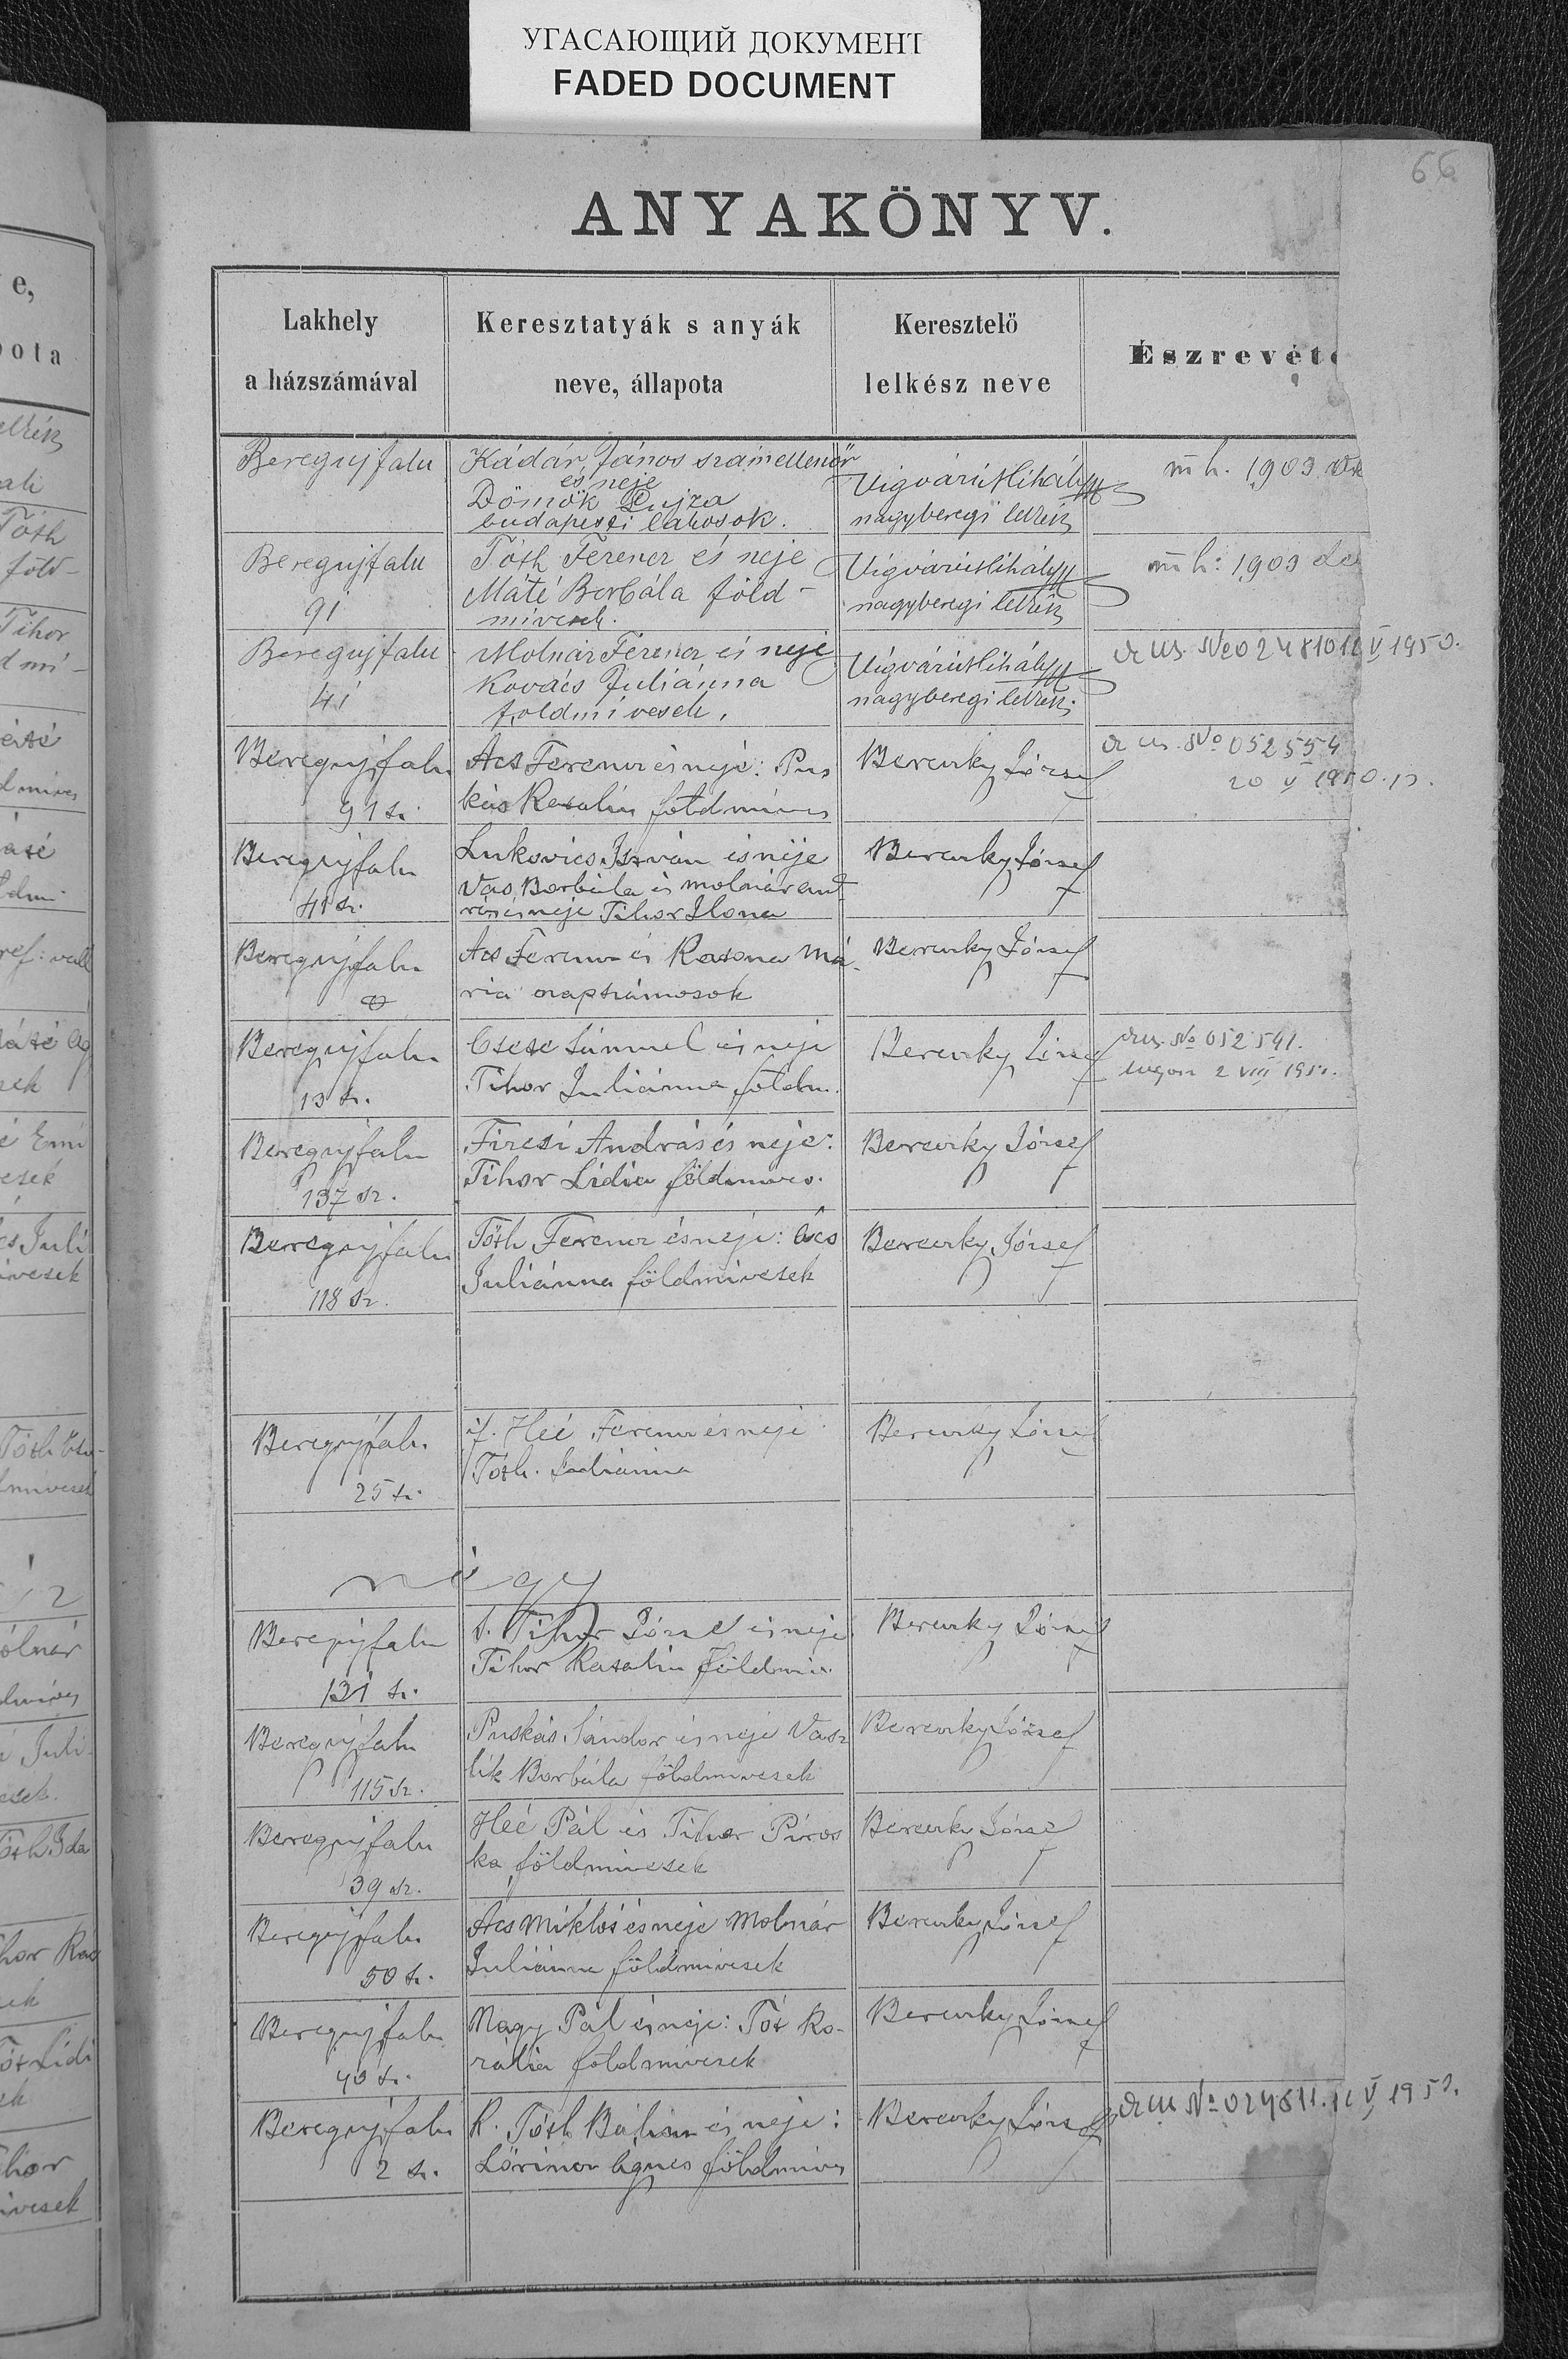 УГАСАЮЩИЙ ДОКУМЕНТ
FADED DOCUMENT
66
ANYAKÖNYV.
Lakhely
a házszámával
Keresztatyák s anyák
neve, állapota
Keresztelő
lelkész neve
Észrevéte
Beregujfalu
Kádár János számellenőr
és neje
Dömök Lujza
budapesti lakosok.
Vígvári Mihály
nagyberegi lelkész
m h. 1903
Beregujfalu
91
Tóth Ferencz és neje
Máté Borbála föld-
mivesek.
Vígvári Mihály
nagyberegi lelkész
m h: 1903 de
Beregujfalu
41
Molnár Ferencz és neje
Kovács Juliánna
földmivesek.
Vígvári Mihály
nagyberegi lelkész.
No 024810 12 V 1950.
Beregujfalu
91 sz.
Acs Ferencz és neje: Pus
kás Rozalia földmives
Bereczky József
No 052554
20 V 1950.
Beregujfalu
41 sz.
Lukovics István és neje
Vas Borbála és molnár and
rás és neje Tihor Ilona
Bereczky József
Beregujfalu
Acs Ferencz és Katona Má
ria napszámosok
Bereczky József
Beregujfalu
13 sz.
Csete Sámuel és neje
Tihor Juliánna földm.
Bereczky József
No 052541.
2 VIII 195
Beregujfalu
137 sz.
Firesi András és neje:
Tihor Lidia földmives.
Bereczky József
Beregujfalu
118 sz.
Tóth Ferencz és neje: Ács
Juliánna földmivesek
Bereczky József
Beregujfalu
25 sz.
if. Heé Ferencz és neje
Tóth. Juliánna
Bereczky József
négy
Beregujfalu
131 sz.
Tihor József és neje
Tihor Rozalia földmiv.
Bereczky József
Beregujfalu
115 sz.
Puskás Sándor és neje Vasz
lik Borbála földmivesek
Bereczky József
Beregujfalu
39 sz.
Heé Pál és Tihor Piros
ka földmivesek
Bereczky József
Beregujfalu
50 sz.
Ács Miklós és neje Molnár
Juliánna földmivesek
Bereczky József
Beregujfalu
40 sz.
Nagy Pál és neje: Tót Ko-
rália földmivesek
Bereczky József
Beregujfalu
2 sz.
K. Tóth Bálint és neje:
Lőrincz Ágnes földmives
Bereczky József
No 024811. 12 V 1950.